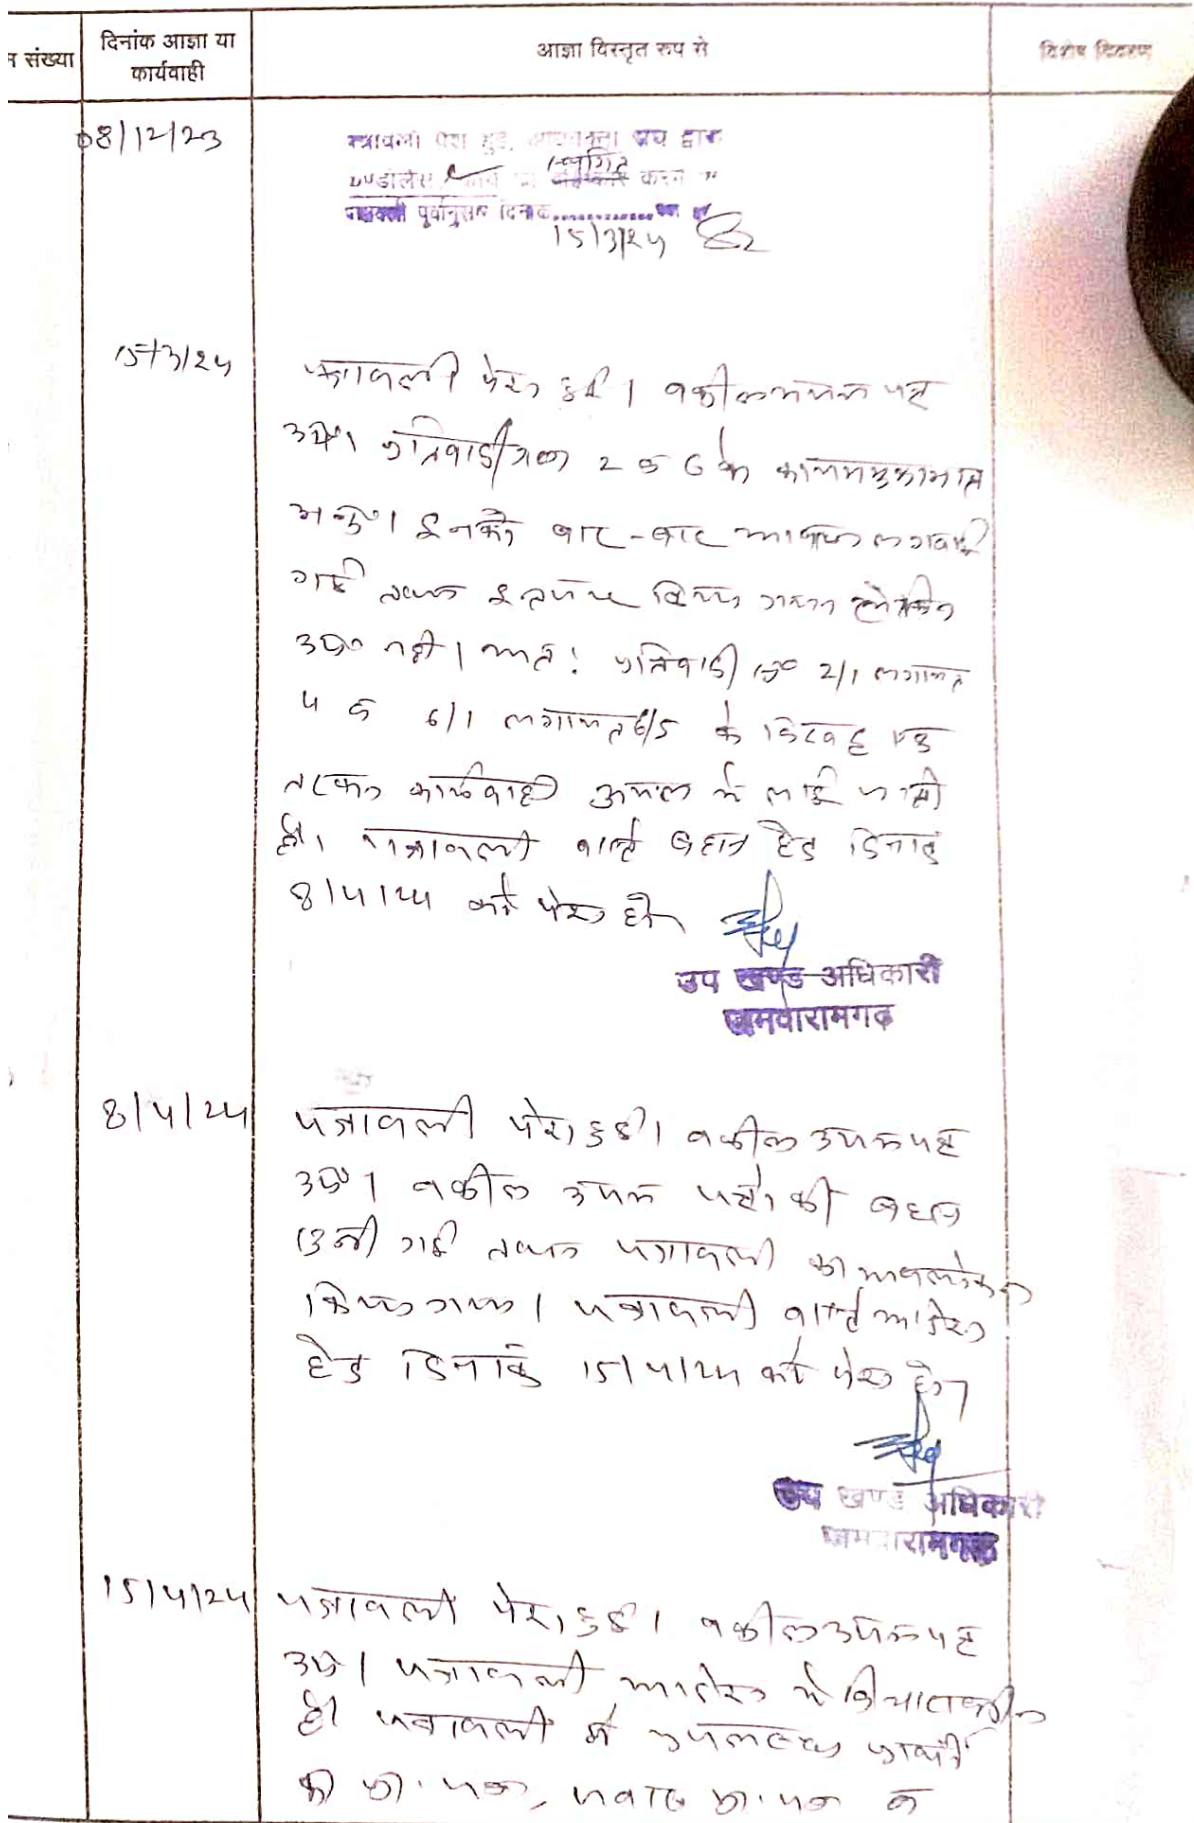 न संख्या
दिनांक आज्ञा या
कार्यवाही
आज्ञा विस्तृत रूप से
विशेष विवरण
08/12/23
पेश हुई, द्वारा
स्थगित
करने
पत्रावली पूर्वानुसार दिनांक............
15/3/24
15/3/24
पत्रावली पेश हुई। वकील उभय पक्ष
उप०। प्रतिवादीगण 2 व 6 के कायममुकामान
अनु०। इनको बार-बार आवाज लगवाई
गई तथा इन्तजार किया गया लेकिन
उप० नहीं। अतः प्रतिवादी क्र० 2/1 लगायत
4 व 6/1 लगायत 6/5 के विरुद्ध एक
तरफा कार्यवाही अमल में लाई जाती
है। पत्रावली वास्ते बहस हेतु दिनांक
8/4/24 को पेश हो।
उप खण्ड अधिकारी
जमवारामगढ़
8/4/24
पत्रावली पेश हुई। वकील उभय पक्ष
उप०। वकील उभय पक्षों की बहस
सुनी गई तथा पत्रावली का अवलोकन
किया गया। पत्रावली वास्ते आदेश
हेतु दिनांक 15/4/24 को पेश हो।
उप खण्ड अधिकारी
जमवारामगढ़
15/4/24
पत्रावली पेश हुई। वकील उभय पक्ष
उप०। पत्रावली आदेश में विचाराधीन
है। पत्रावली में उपलब्ध प्रार्थी
का प्रा. पत्र, जवाब प्रा. पत्र व